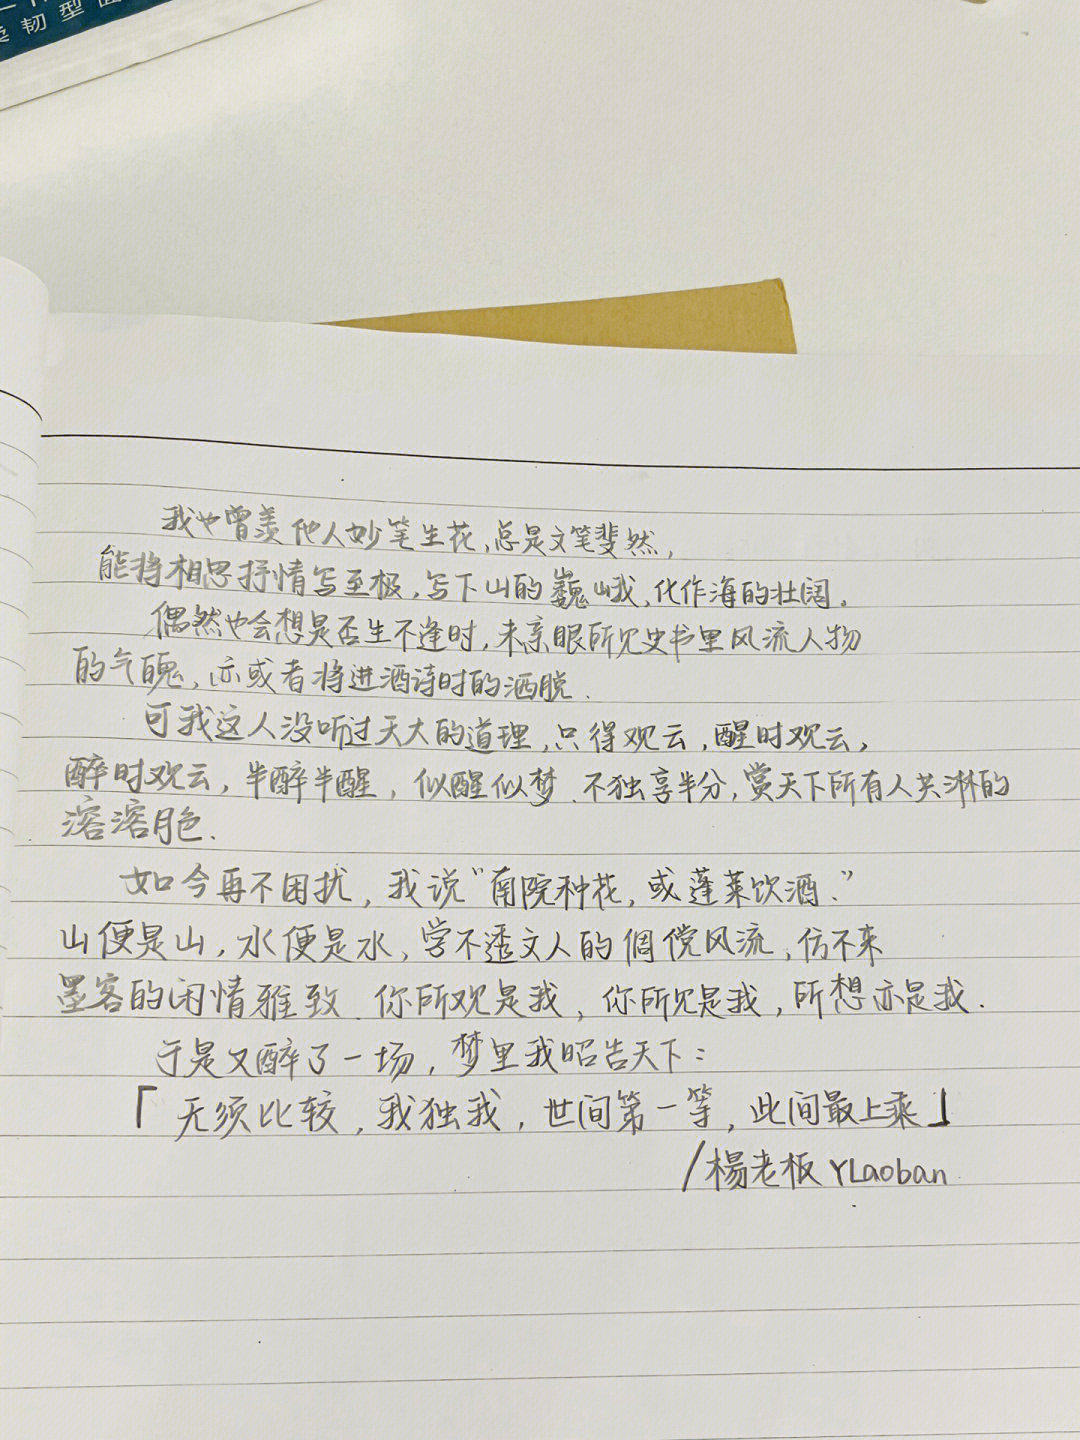 柔韧型面
我也曾羡他人妙笔生花,总是文笔斐然,
能将相思抒情写至极,写下山的巍峨,化作海的壮阔。
偶然也会想是否生不逢时,未亲眼所见史书里风流人物
的气魄,亦或者将进酒诗时的洒脱.
可我这人没听过天大的道理,只得观云,醒时观云,
醉时观云,半醉半醒,似醒似梦.不独享半分,赏天下所有人共淋的
溶溶月色.
如今再不困扰,我说“南院种花,或蓬莱饮酒.”
山便是山,水便是水,学不透文人的倜傥风流,仿不来
墨客的闲情雅致.你所观是我,你所见是我,所想亦是我.
于是又醉了一场,梦里我昭告天下:
「无须比较,我独我,世间第一等,此间最上乘」
/楊老板YLaoban